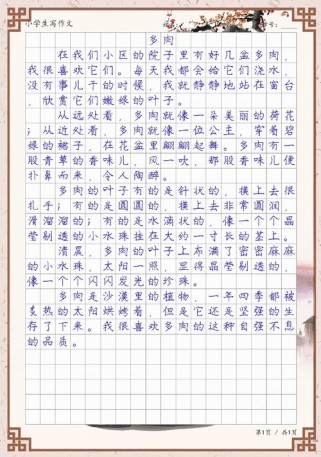 小学生写作文
多肉
在我们小区的院子里有好几盆多肉，
我很喜欢它们。每天我都会给它们浇水，
没有事儿干的时候，我就静静地站在窗台
，欣赏它们嫩绿的叶子。
从远处看，多肉就像一朵美丽的荷花
；从近处看，多肉就像一位公主，穿着碧
绿的裙子，在花盆里翩翩起舞。多肉有一
股青草的香味儿，风一吹，那股香味儿便
扑鼻而来，令人陶醉。
多肉的叶子有的是针状的，摸上去很
扎手；有的是圆圆的，摸上去非常圆润，
滑溜溜的；有的是水滴状的，像一个个晶
莹剔透的小水珠挂在大约一寸长的茎上。
清晨，多肉的叶子上布满了密密麻麻
的小水珠，太阳一照，显得晶莹剔透的，
像一个个闪闪发光的珍珠。
多肉是沙漠里的植物，一年四季都被
炙热的太阳烘烤着，但是它还是坚强的生
存了下来。我很喜欢多肉的这种自强不息
的品质。
第1页 / 共1页